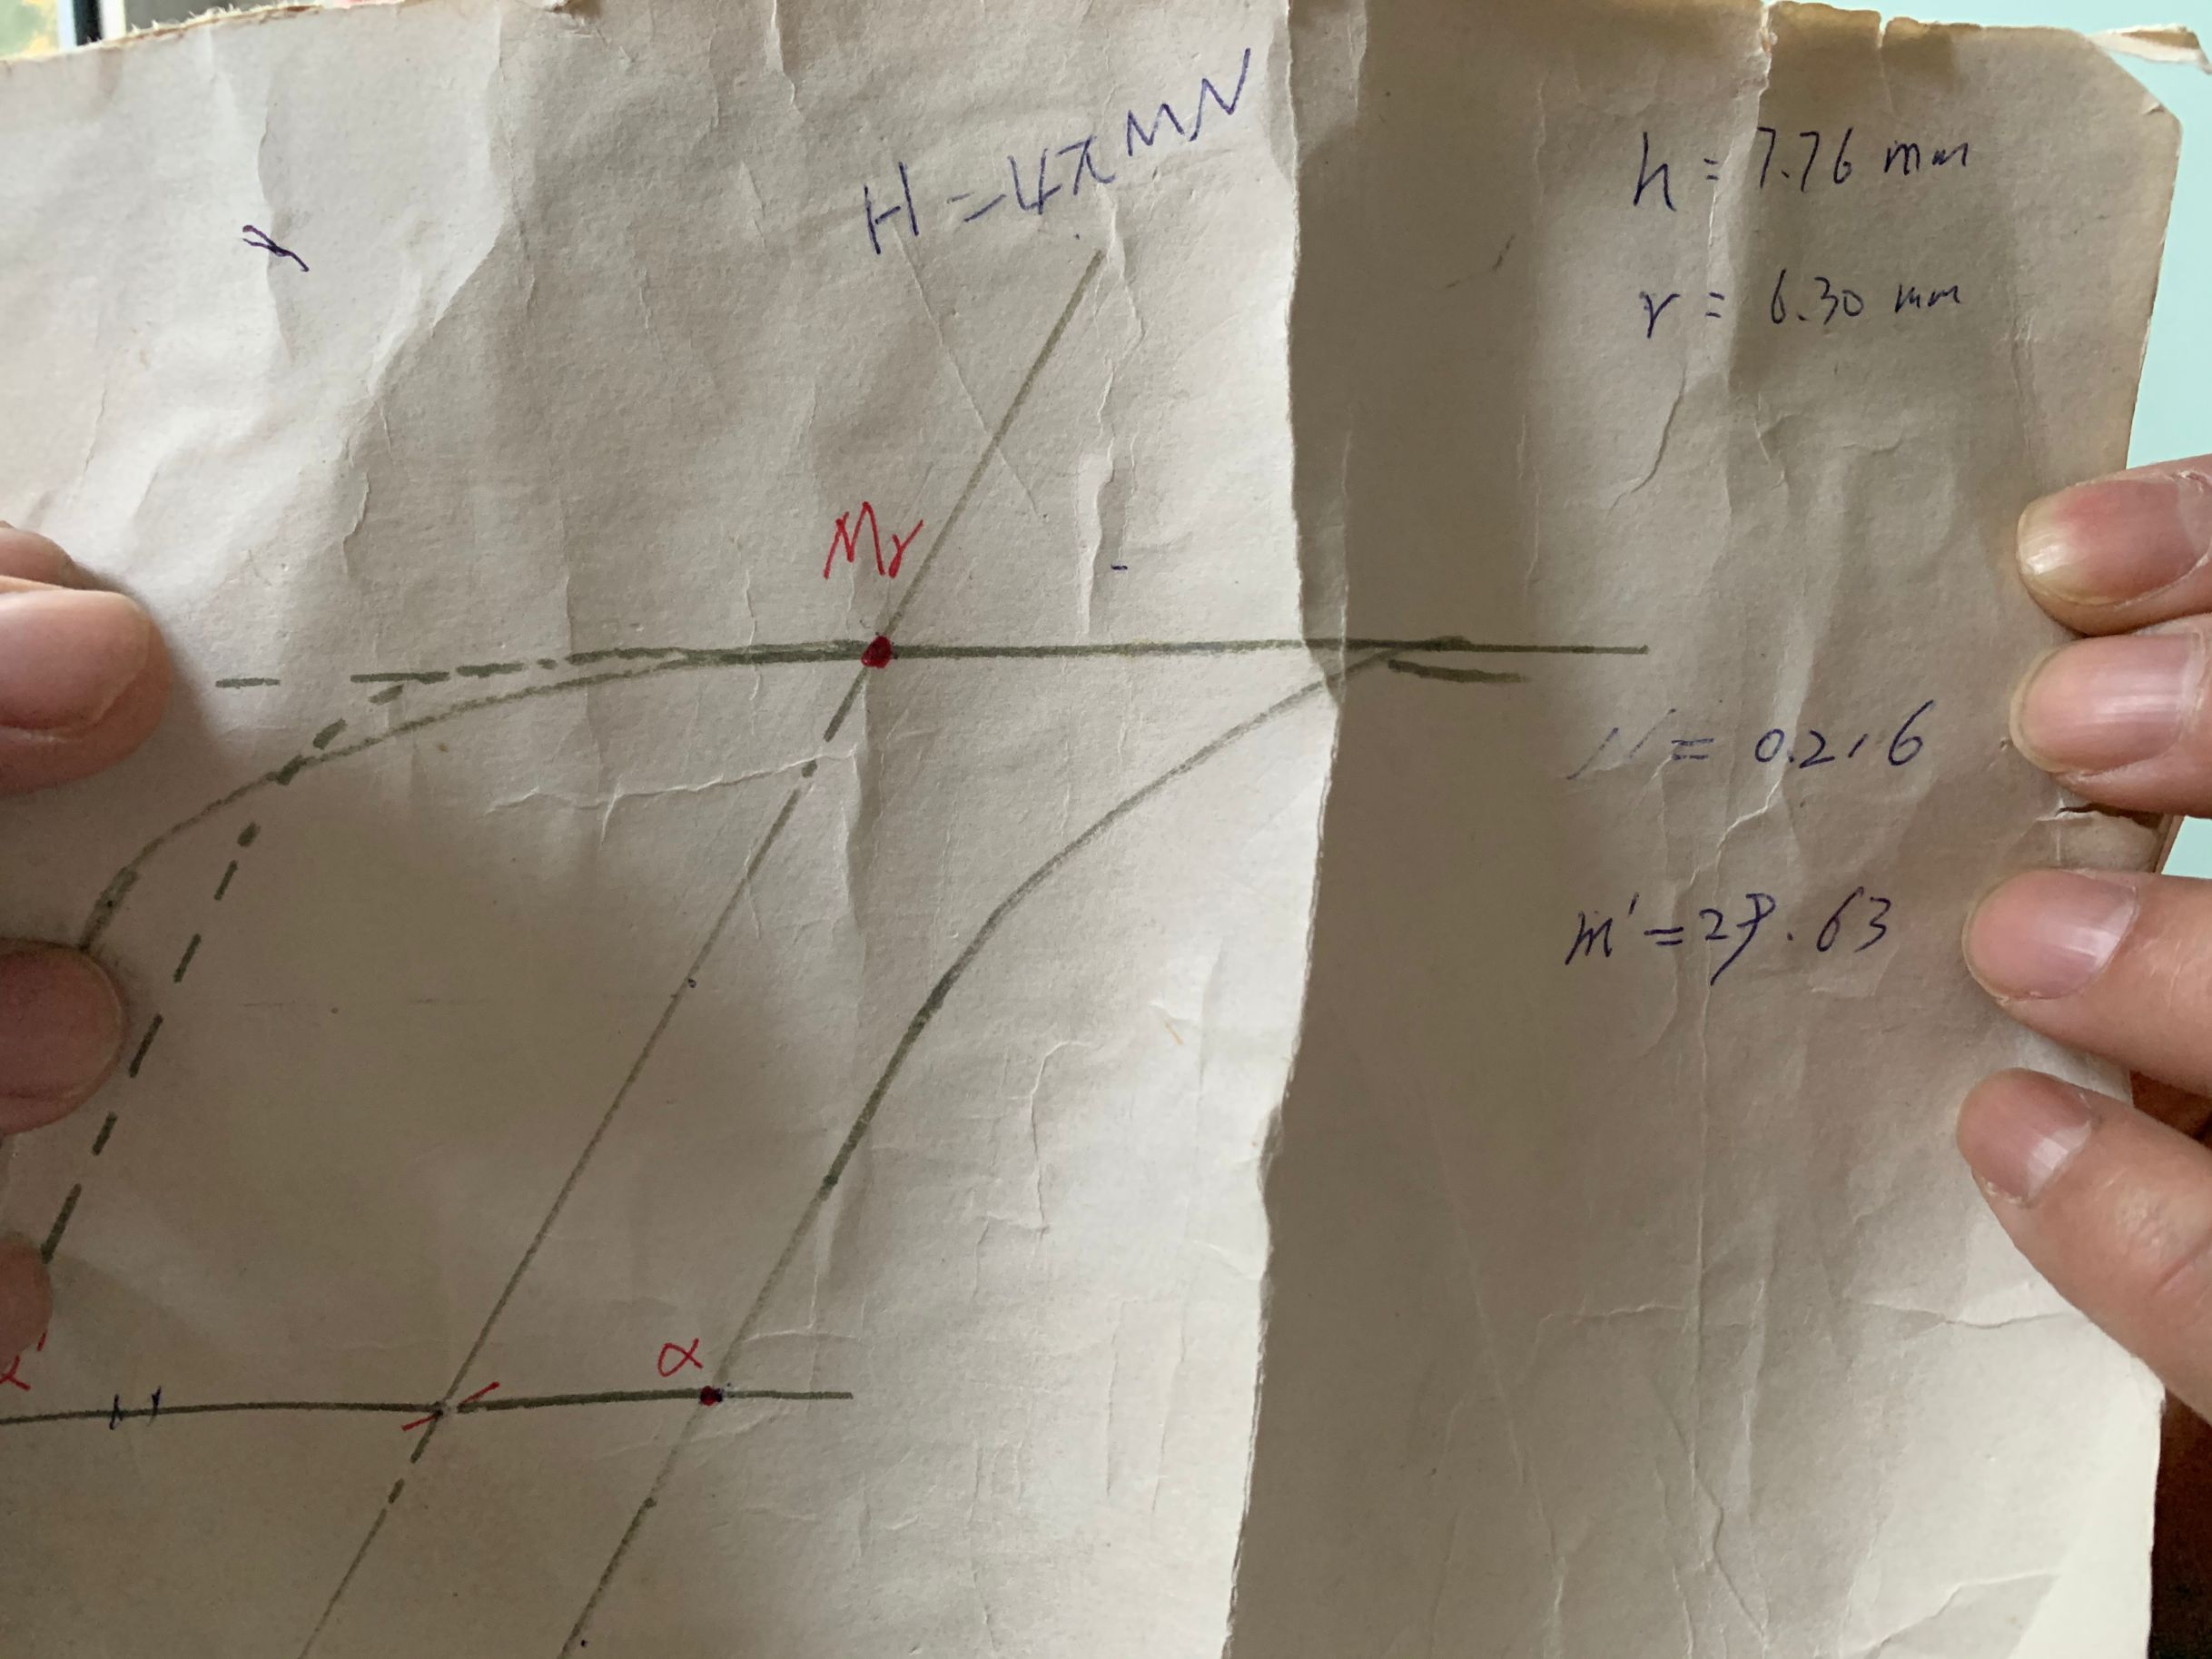 H = 4π MN
h = 7.76 mm
r = 6.30 mm
Mr
N = 0.216
α